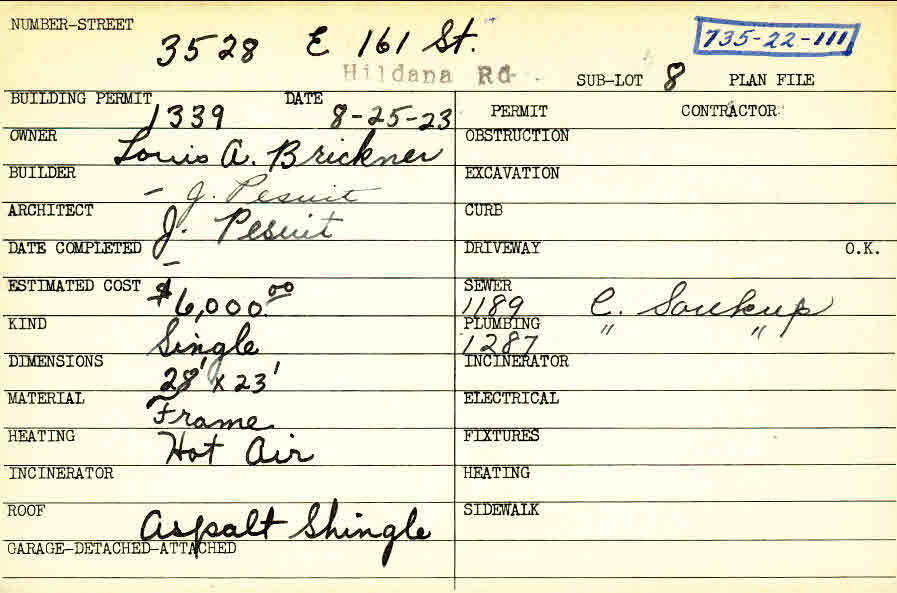 NUMBER-STREET 3528 E 161 St. 735-22-111
Hildana Rd SUB-LOT 8 PLAN FILE
BUILDING PERMIT 1339 DATE 8-25-23 PERMIT CONTRACTOR
OWNER Louis A. Brickner OBSTRUCTION
BUILDER - J. Pesuit EXCAVATION
ARCHITECT J. Pesuit CURB
DATE COMPLETED - DRIVEWAY O.K.
ESTIMATED COST $6,000.00 SEWER 1189 C. Soukup
KIND Single PLUMBING 1287 " "
DIMENSIONS 28' x 23' INCINERATOR
MATERIAL Frame ELECTRICAL
HEATING Hot Air FIXTURES
INCINERATOR HEATING
ROOF Aspalt Shingle SIDEWALK
GARAGE-DETACHED-ATTACHED